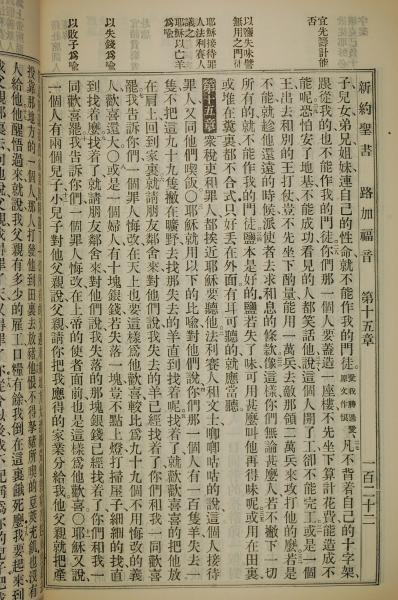 新約聖書 路加福音 第十五章 一百二十二
宜先籌計能否
以鹽失味譬無用之門徒
耶穌接待罪人法利賽人議之
耶穌以亡羊爲喻
以失錢爲喻
以敗子爲喻
子兒女弟兄姐妹連自己的性命就不能作我的門徒愛我勝過愛原文作恨凡不背着自己的十字架
跟從我的也不能作我的門徒你們那一個人要葢造一座樓不先坐下算計花費能造成不
能呢恐怕安了地基不能成功看見的人都笑話他說這個人開了工卻不能完工或是一個
王出去和別的王打仗豈不先坐下酌量能用一萬兵去敵那領二萬兵來攻打他的麽若是
不能就趁他還遠的時候派使者去求和息的條款像這樣你們無論甚麽人若不撇下一切
所有的就不能作我的門徒鹽本是好的鹽若失了味可用甚麽叫他再得味呢或用在田裏
或堆在糞裏都不合式只好丟在外面有耳可聽的就應當聽
第十五章衆稅吏和罪人都挨近耶穌要聽他法利賽人和文士唧唧咕咕的說這個人接待
罪人又同他們喫飯〇耶穌就用以下的比喻對他們說你們那一個人有一百隻羊失去一
隻不把這九十九隻撇在曠野去找那失去的羊直到找着呢找着了就歡歡喜喜的把他放
在肩上回到家裏就請朋友鄰舍來對他們說我失去的羊已經找着了你們和我一同歡喜
罷我告訴你們一個罪人悔改在天上也要這樣爲他歡喜較比爲九十九個不用悔改的義
人歡喜還大〇或是一個婦人有十塊銀錢若失落一塊豈不點上燈打掃屋子細細的找直
到找着麽找着了就請朋友鄰舍來對他們說我失落的那塊銀錢已經找着了你們和我一
同歡喜罷我告訴你們一個罪人悔改在上帝的使者面前也是這樣爲他歡喜〇耶穌又說
一個人有兩個兒子小兒子對他父親說父親請你把我應得的家業分給我他父親就把產
投靠那地方的一個人那人打發他到田裏去放豬他恨不得拿豬所喫的豆莢充飢也沒有
人給他他醒悟過來就說我父親有多少的雇工口糧有餘我倒在這裏餓死麽我要起來到